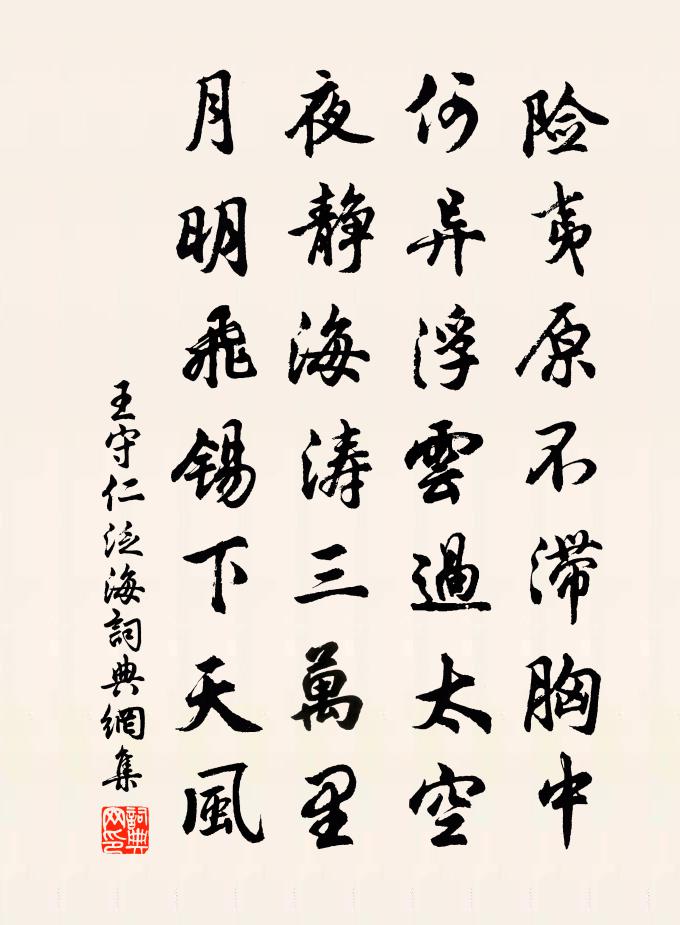 险夷原不滞胸中
何异浮雲過太空
夜静海涛三萬里
月明飛锡下天風
王守仁泛海詞典網集
詞典網印